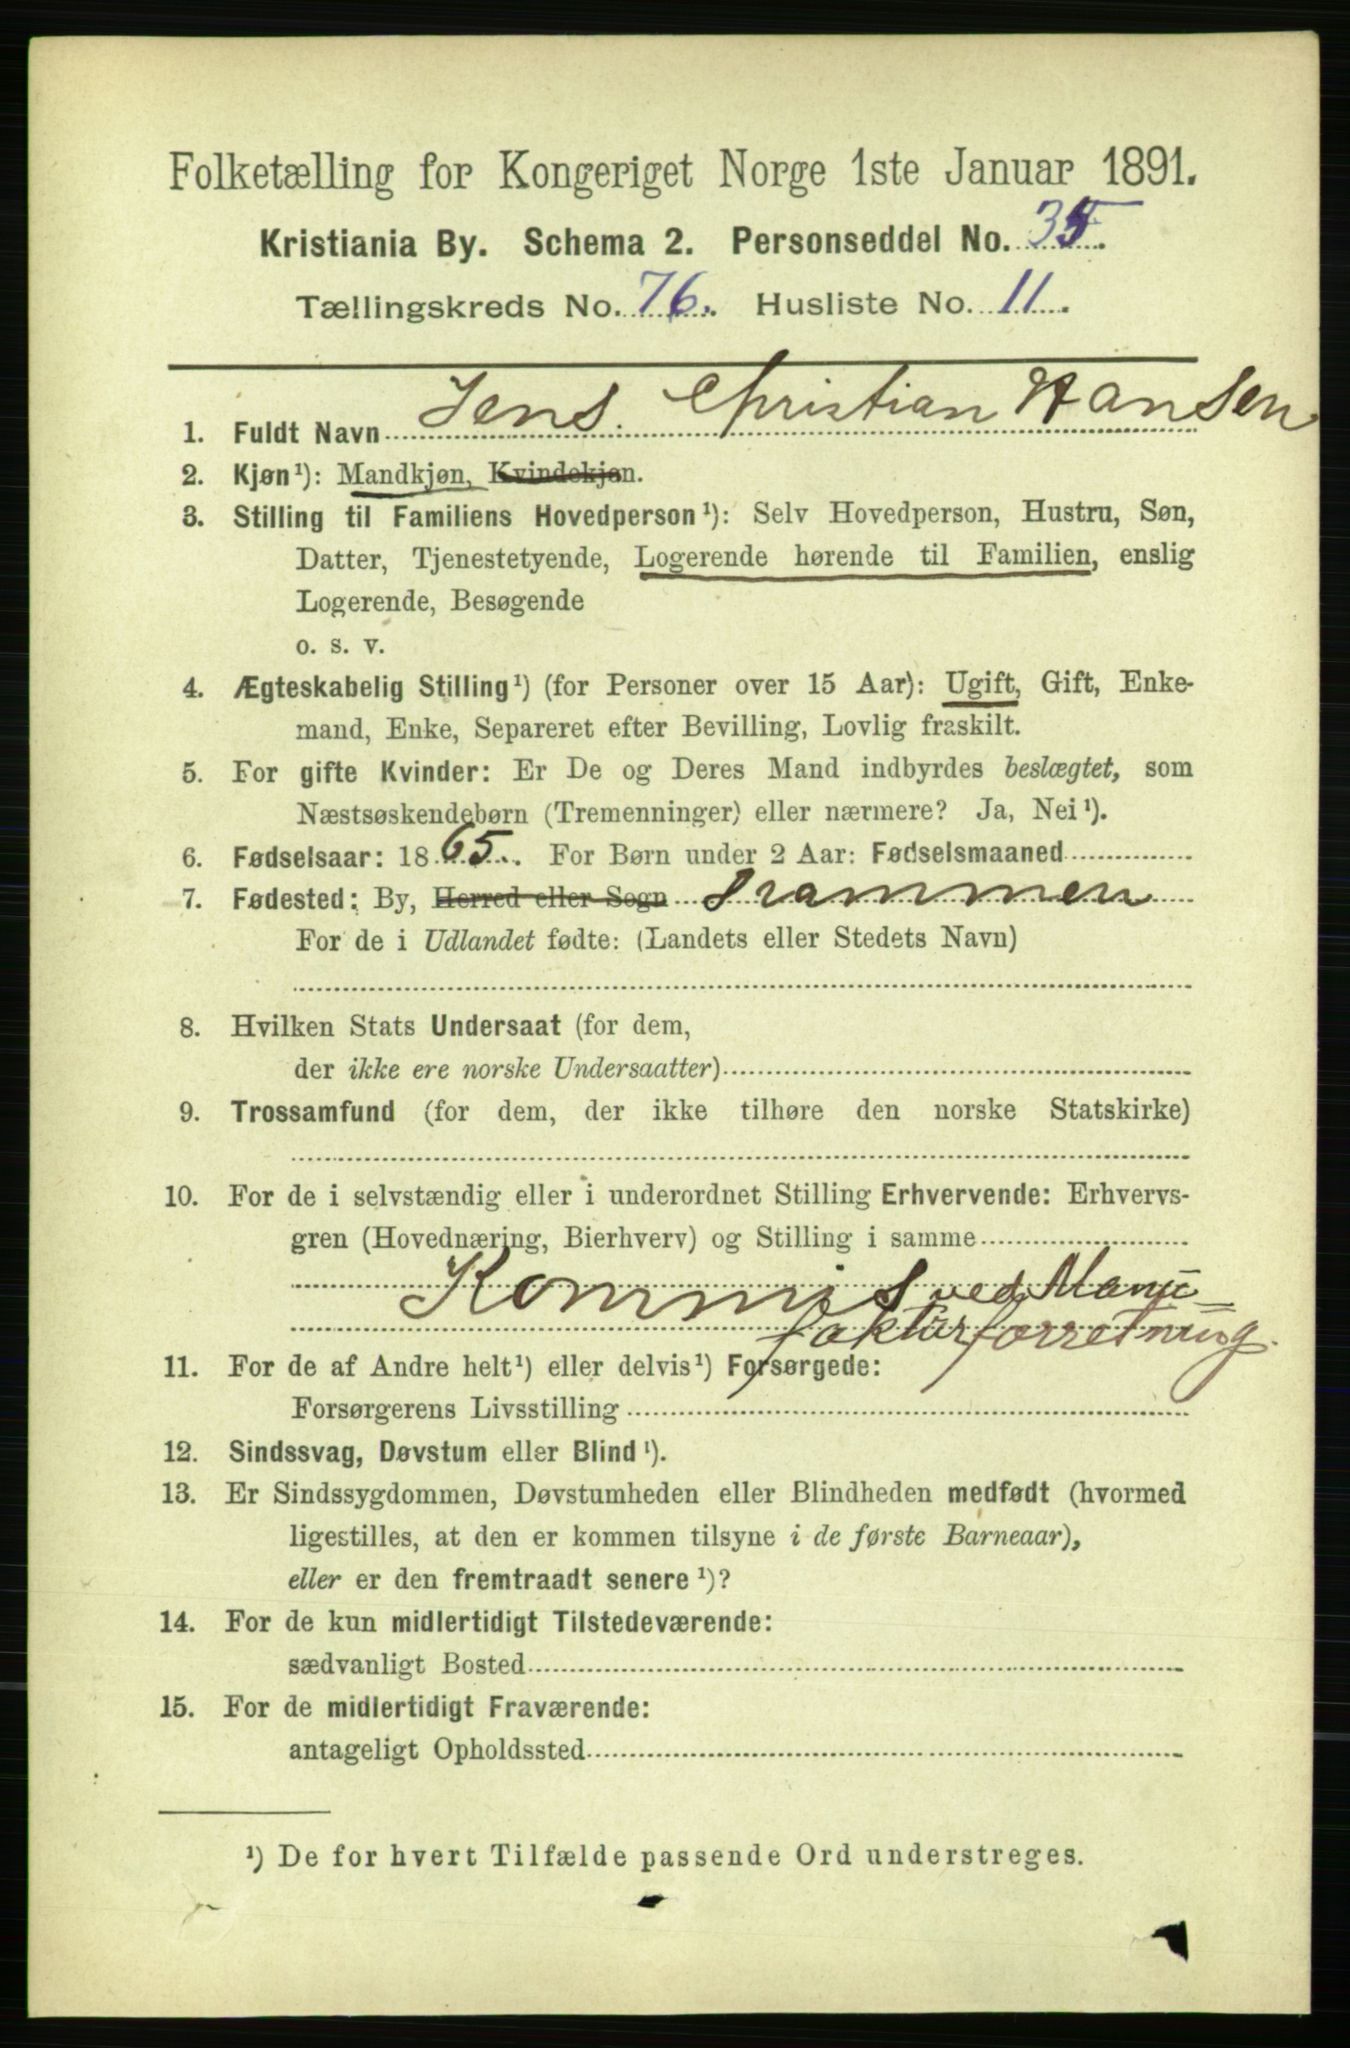 Folketælling for Kongeriget Norge 1ste Januar 1891.
Kristiania By. Schema 2. Personseddel No. 35.
Tællingskreds No. 76. Husliste No. 11.
1. Fuldt Navn Jens. Christian Hansen
2. Kjøn¹): Mandkjøn, Kvindekjøn.
3. Stilling til Familiens Hovedperson¹): Selv Hovedperson, Hustru, Søn,
Datter, Tjenestetyende, Logerende hørende til Familien, enslig
Logerende, Besøgende
o. s. v.
4. Ægteskabelig Stilling¹) (for Personer over 15 Aar): Ugift, Gift, Enke-
mand, Enke, Separeret efter Bevilling, Lovlig fraskilt.
5. For gifte Kvinder: Er De og Deres Mand indbyrdes beslægtet, som
Næstsøskendebørn (Tremenninger) eller nærmere? Ja, Nei¹).
6. Fødselsaar: 1865. For Børn under 2 Aar: Fødselsmaaned
7. Fødested: By, Herred eller Sogn Drammen
For de i Udlandet fødte: (Landets eller Stedets Navn)
8. Hvilken Stats Undersaat (for dem,
der ikke ere norske Undersaatter)
9. Trossamfund (for dem, der ikke tilhøre den norske Statskirke)
10. For de i selvstændig eller i underordnet Stilling Erhvervende: Erhvervs-
gren (Hovednæring, Bierhverv) og Stilling i samme
Kommis ved Manu=
fakturforretning.
11. For de af Andre helt¹) eller delvis¹) Forsørgede:
Forsørgerens Livsstilling
12. Sindssvag, Døvstum eller Blind¹).
13. Er Sindssygdommen, Døvstumheden eller Blindheden medfødt (hvormed
ligestilles, at den er kommen tilsyne i de første Barneaar),
eller er den fremtraadt senere¹)?
14. For de kun midlertidigt Tilstedeværende:
sædvanligt Bosted
15. For de midlertidigt Fraværende:
antageligt Opholdssted
¹) De for hvert Tilfælde passende Ord understreges.